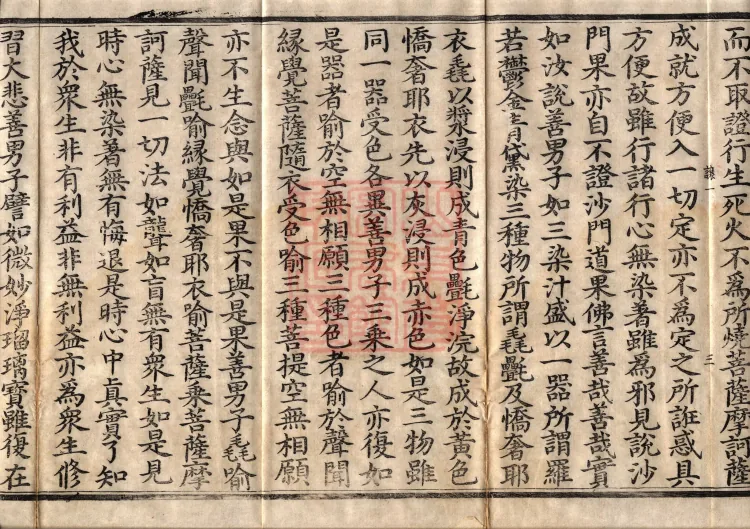 而不取證行生死火不爲所燒菩薩摩訶薩
成就方便入一切定亦不爲定之所誑惑具
方便故雖行諸行心無染著雖爲邪見說沙
門果亦自不證沙門道果佛言善哉善哉實
如汝說善男子如三染汁盛以一器所謂羅
若鬱金青黛染三種物所謂毳㲲及憍奢耶
衣毳以漿浸則成青色㲲淨浣故成於黃色
憍奢耶衣先以灰浸則成赤色如是三物雖
同一器受色各異善男子三乘之人亦復如
是器者喻於空無相願三種色者喻於聲聞
緣覺菩薩隨衣受色喻三種菩提空無相願
亦不生念與如是果不與是果善男子毳喻
聲聞㲲喻緣覺憍奢耶衣喻菩薩乘菩薩摩
訶薩見一切法如聾如盲無有衆生如是見
時心無染著無有悔退是時心中真實了知
我於衆生非有利益非無利益亦爲衆生修
習大悲善男子譬如微妙淨瑠璃寶雖復在
三